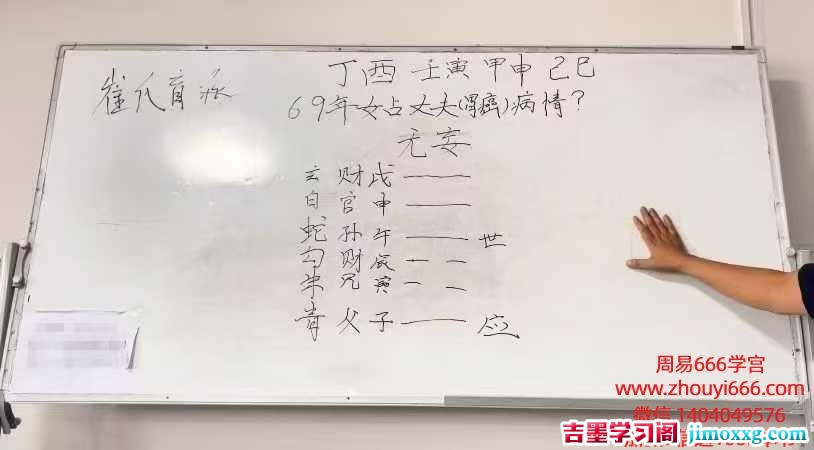 丁酉 壬寅 甲申 己巳
崔氏盲派
69年女占丈夫(胃癌)病情?
无妄
玄 财 戌
白 官 申
蛇 孙 午 世
勾 财 辰
朱 兄 寅
青 父 子 应
周易666学宫
www.zhouyi666.com
微信 1404049576
吉墨学习阁 jimoxxg.com